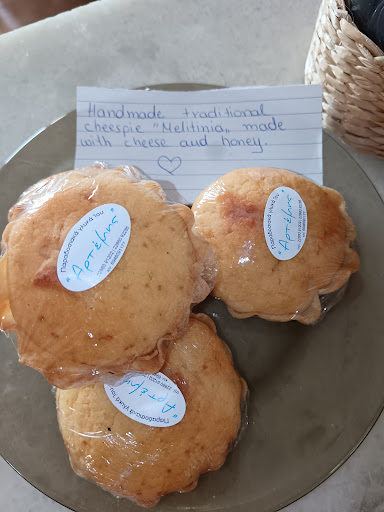 Handmade traditional
cheespie "Melitinia„ made
with cheese aud honey.
♡
Παραδοσιακά γλυκά Ίου
Αρτέμης
Αρτέμης
Παραδοσιακά γλυκά Ίου
Παραδοσιακά γλυκά Ίου